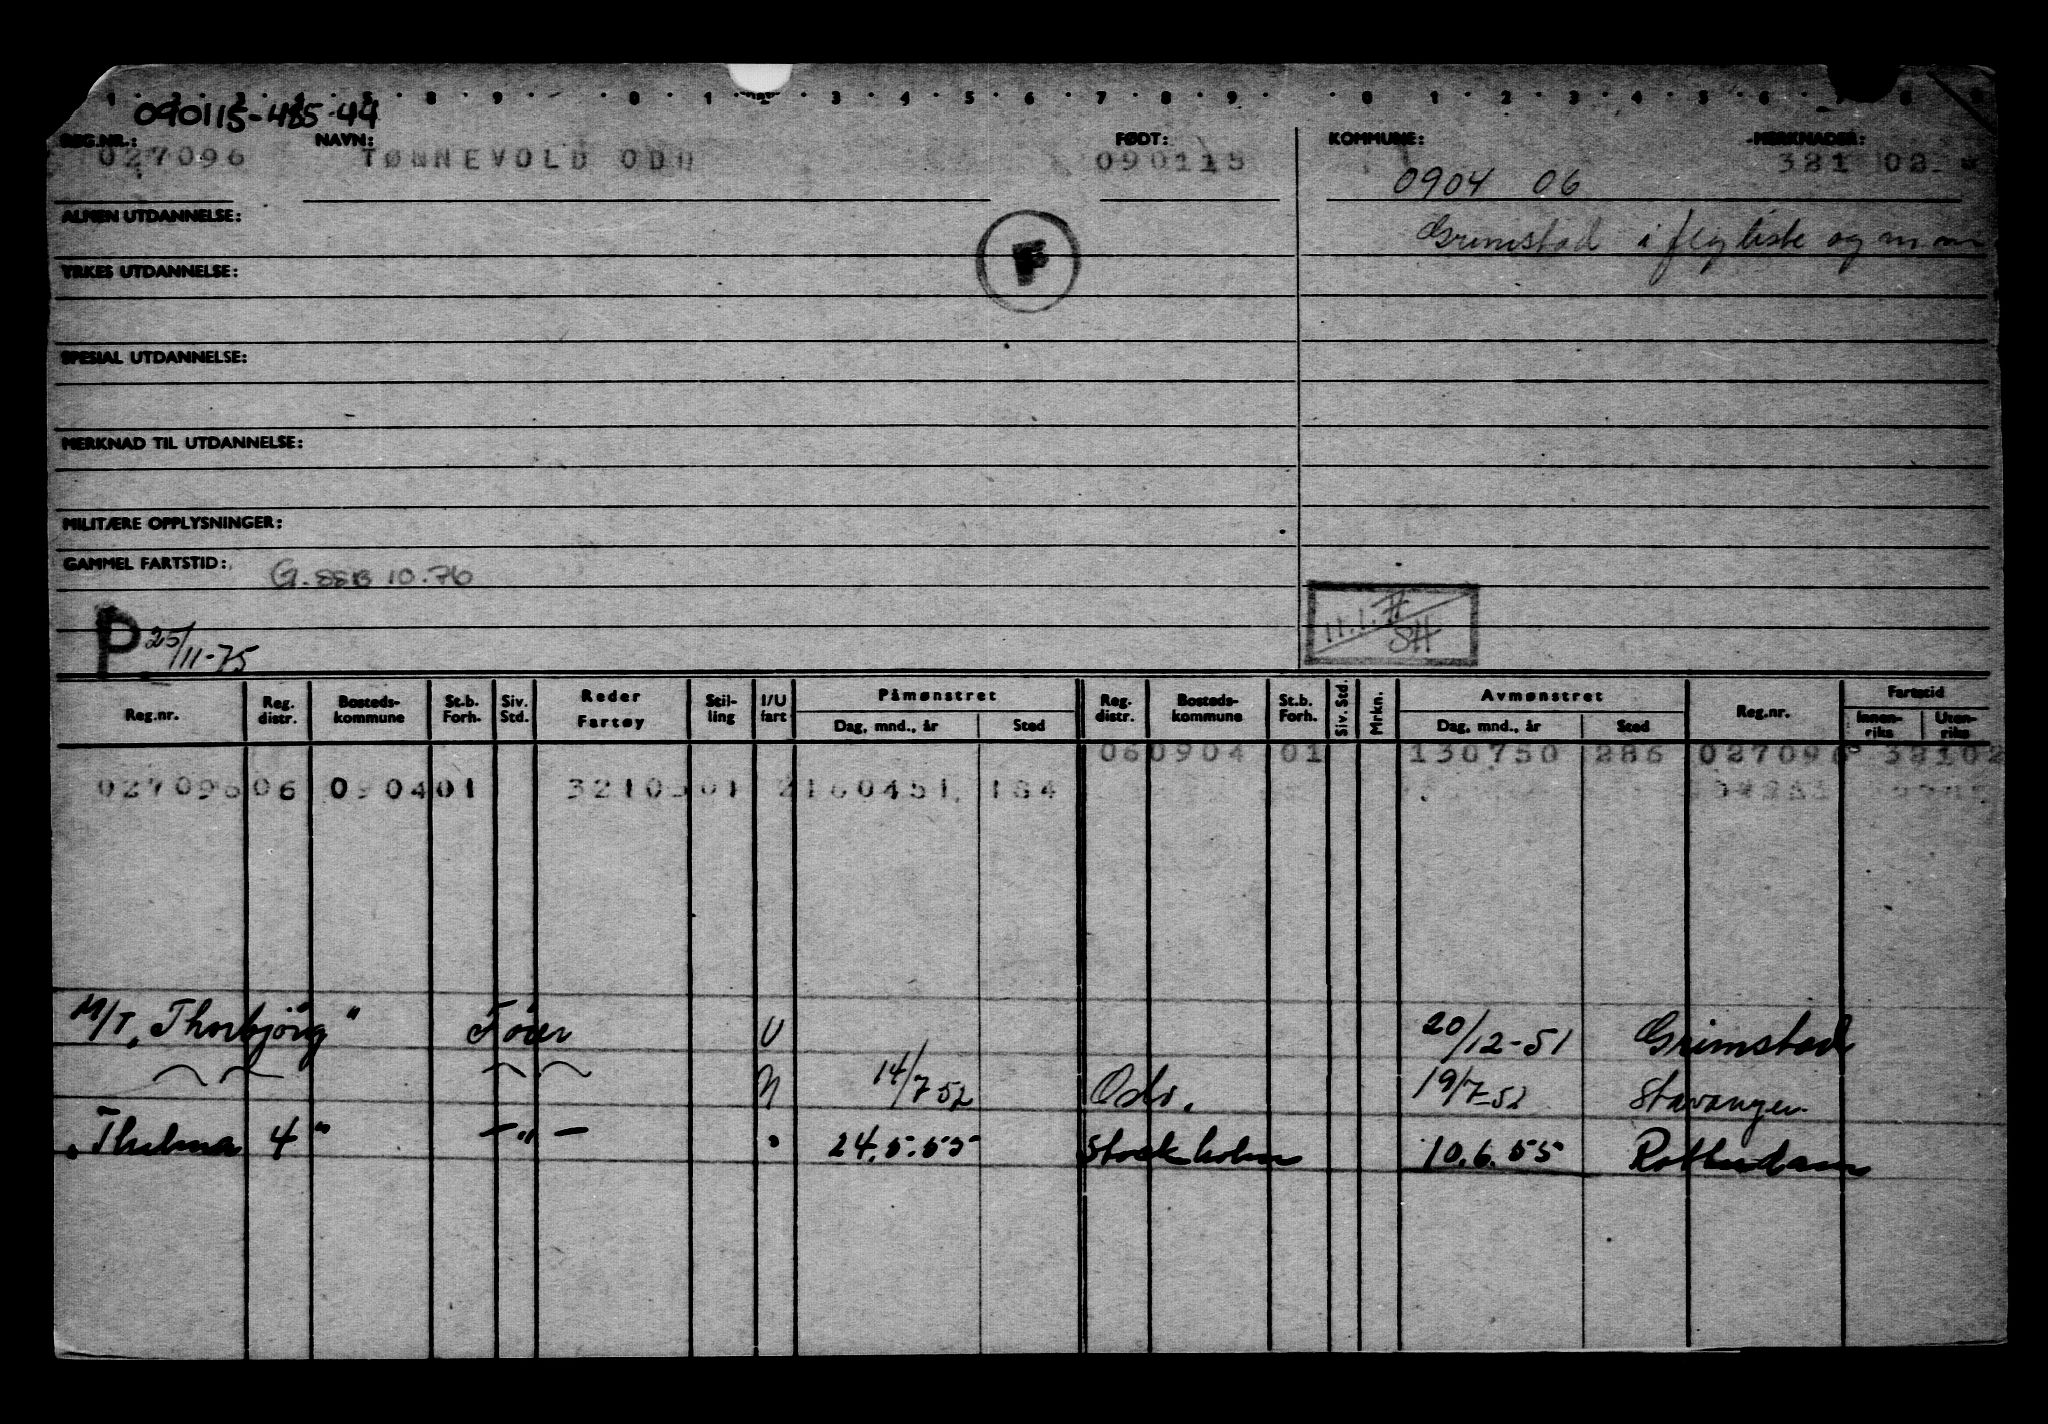 090115-485-44
REG.NR.: NAVN: FØDT: KOMMUNE: MERKNADER:
027096 TØNNEVOLD ODD 090115 0904 06 321 02
ALMEN UTDANNELSE:
Grimstad i flg liste og
F
YRKES UTDANNELSE:
SPESIAL UTDANNELSE:
MERKNAD TIL UTDANNELSE:
MILITÆRE OPPLYSNINGER:
GAMMEL FARTSTID: G. SSB 10.76
11.1.77 SH
P 25/11-75
Reg.nr. Reg. distr. Bosteds-kommune St.b. Forh. Siv. Std. Reder Fartøy Stil-ling I/U fart Påmønstret Dag, mnd., år Sted Reg. distr. Bosteds-kommune St.b. Forh. Siv. Std. Mrkn. Avmønstret Dag, mnd., år Sted Reg.nr. Fartstid Innen-riks Uten-riks
06 0904 01 130750 286 027096 32102
027096 06 0904 01 01 2 160451 184
M/T "Thorbjörg" U 20/12-51 Grimstad
N 14/7 52 Oslo. 19/7-52 Stavanger
"Thelma 4" - " - " 24.5.55 Stockholm 10.6.55 Rotterdam